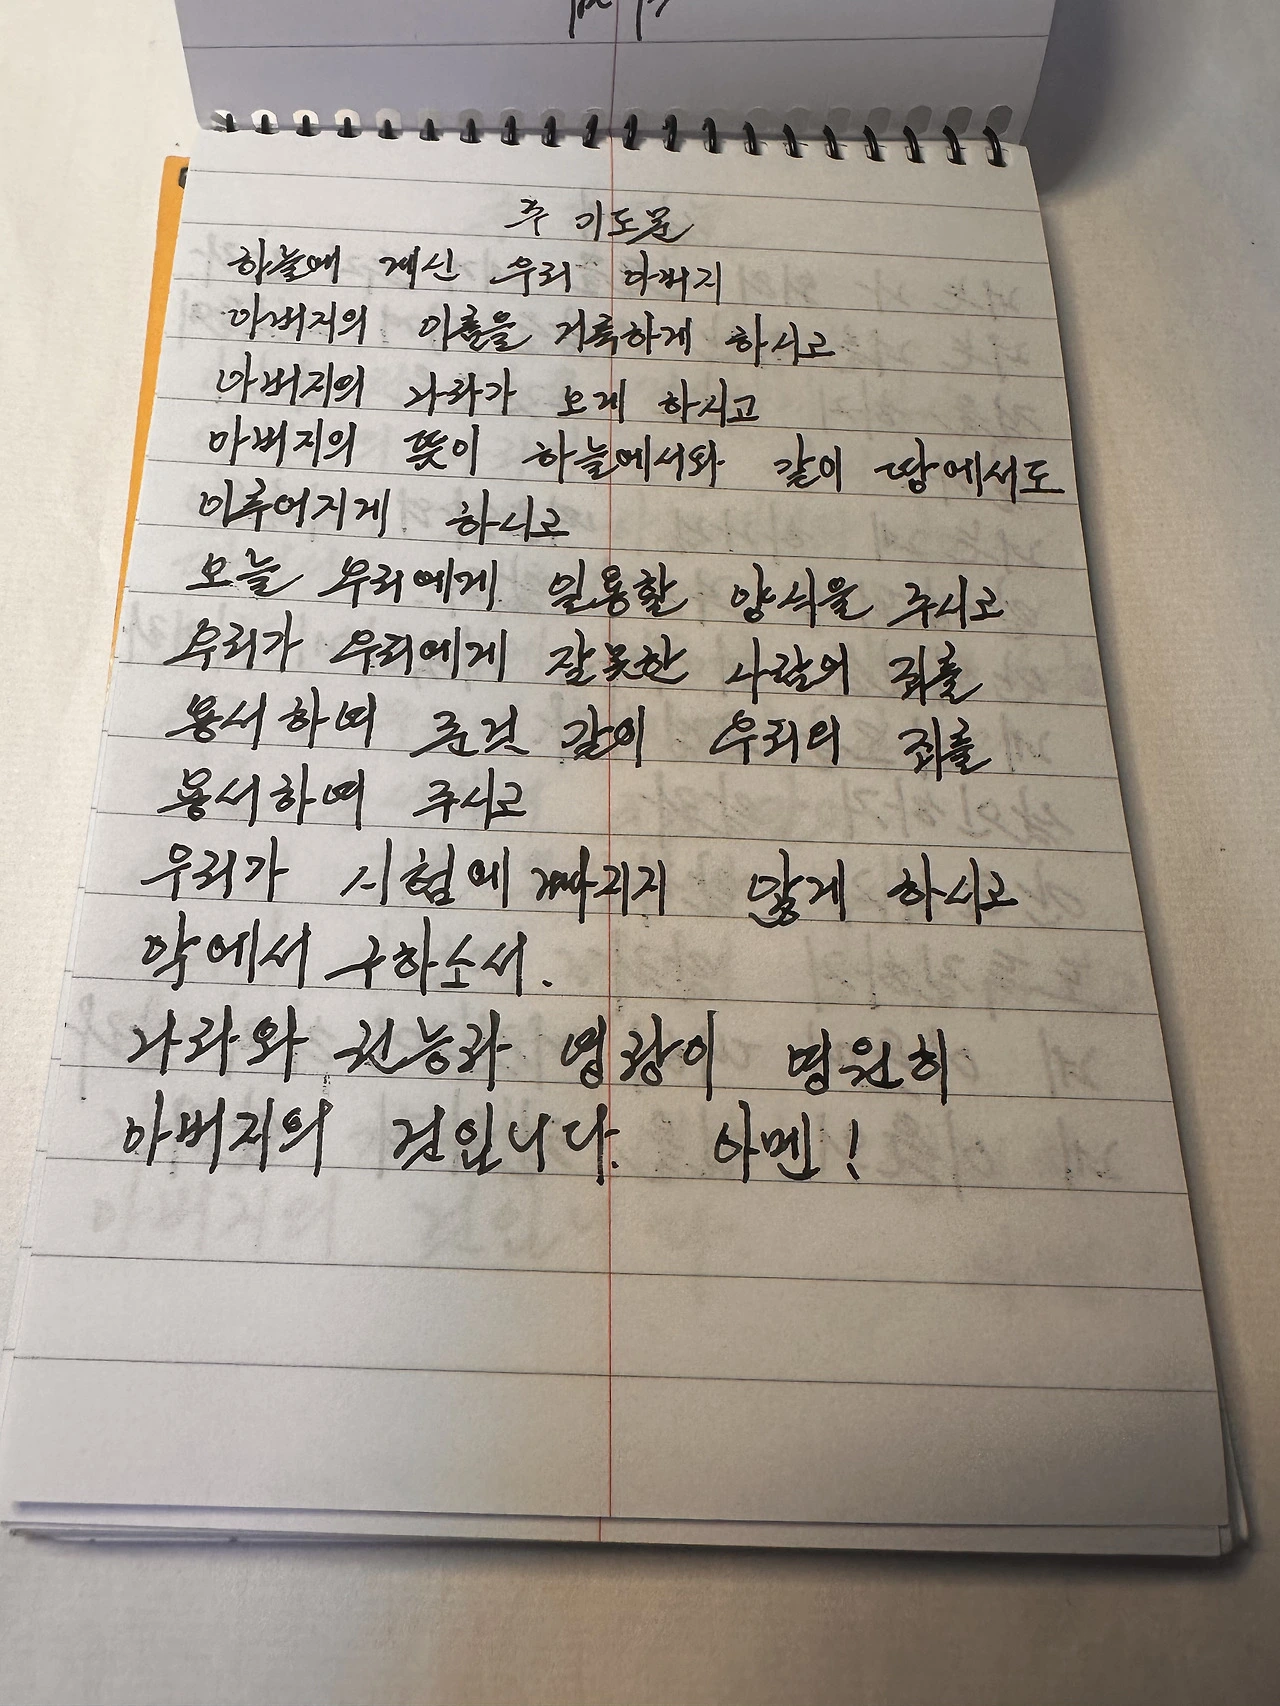 주 기도문
하늘에 계신 우리 아버지
아버지의 이름을 거룩하게 하시고
아버지의 나라가 오게 하시고
아버지의 뜻이 하늘에서와 같이 땅에서도
이루어지게 하시고
오늘 우리에게 일용할 양식을 주시고
우리가 우리에게 잘못한 사람의 죄를
용서하여 준것 같이 우리의 죄를
용서하여 주시고
우리가 시험에 빠지지 않게 하시고
악에서 구하소서.
나라와 권능과 영광이 영원히
아버지의 것입니다. 아멘!